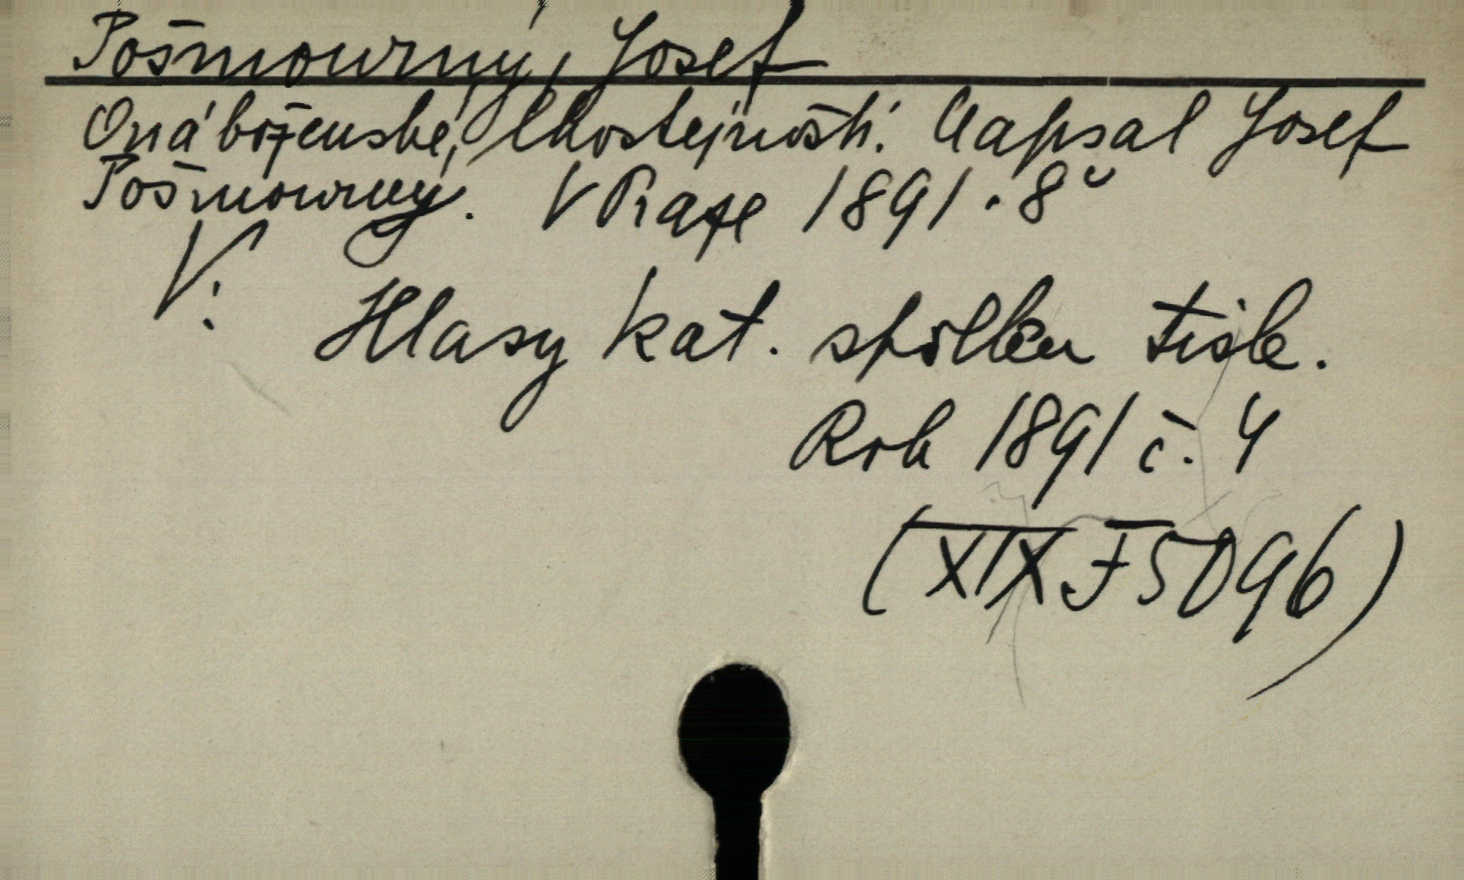 Pošmourný, Josef
O náboženské lhostejnosti. Napsal Josef
Pošmourný. V Praze 1891. 8°
V:
Hlasy kat. spolku tisk.
Rok 1891 č. 4
(XIX F 5096)